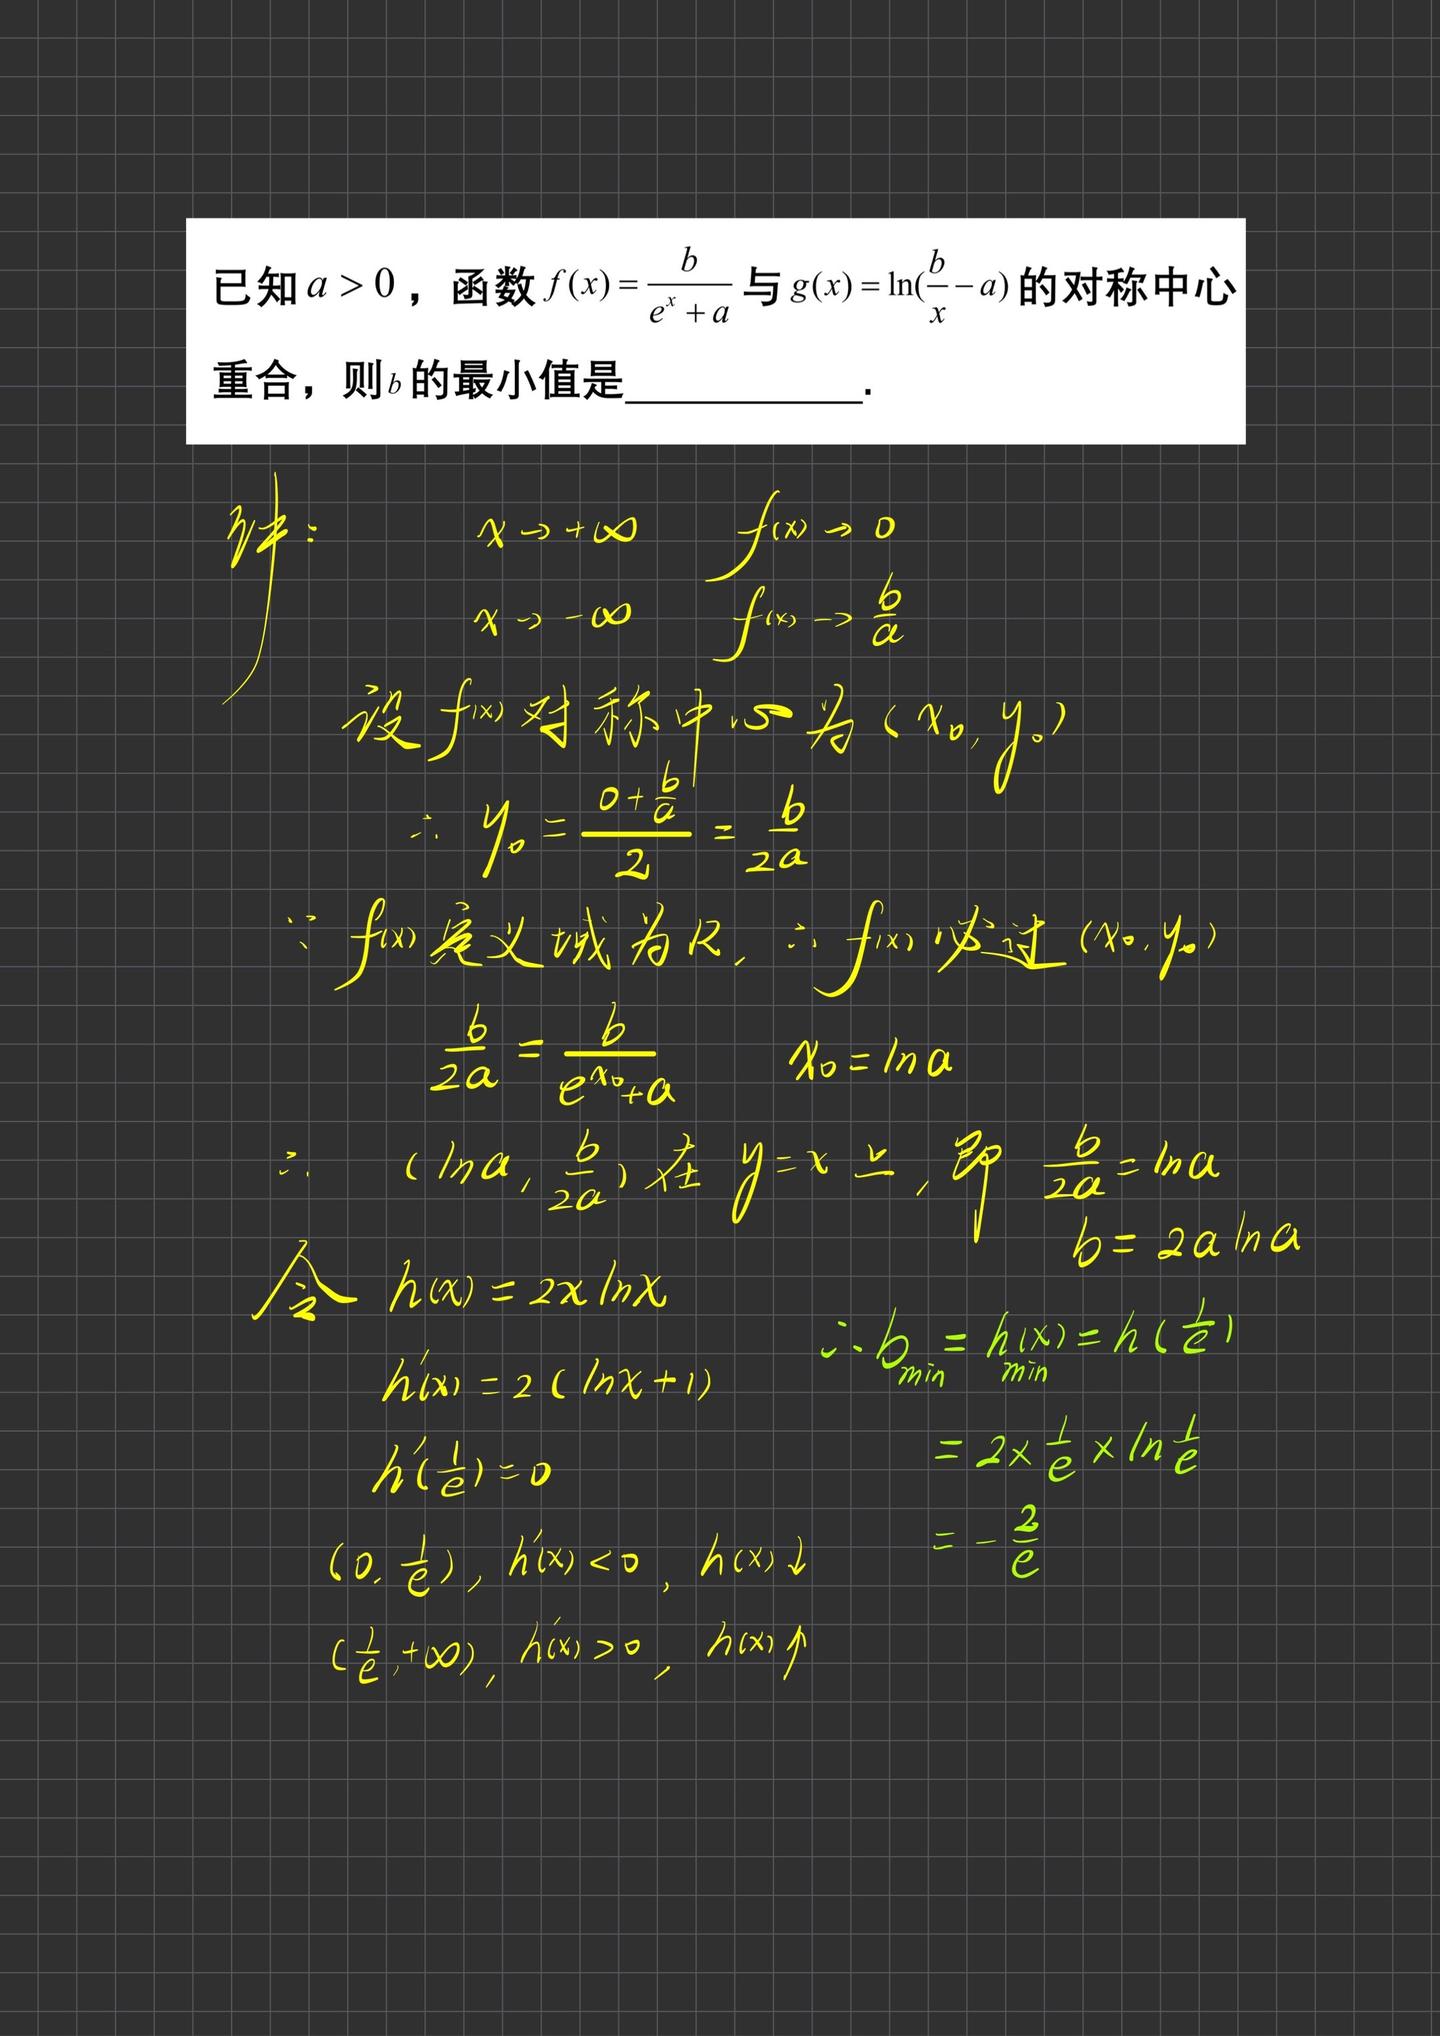 已知 a > 0 ，函数 f(x) = b/(e^x + a) 与 g(x) = ln(b/x − a) 的对称中心
重合，则 b 的最小值是___________.
解： x → +∞ f(x) → 0
x → -∞ f(x) → b/a
设 f(x) 对称中心为 (x₀, y₀)
∴ y₀ = (0 + b/a)/2 = b/2a
∵ f(x) 定义域为 R, ∴ f(x) 必过 (x₀, y₀)
b/2a = b/(e^x₀ + a) x₀ = ln a
∴ (ln a, b/2a) 在 y = x 上, 即 b/2a = ln a
b = 2a ln a
令 h(x) = 2x ln x
h'(x) = 2(ln x + 1)
h'(1/e) = 0
(0, 1/e), h'(x) < 0, h(x)↓
(1/e, +∞), h'(x) > 0, h(x)↑
∴ b min = h(x) min = h(1/e)
= 2 × 1/e × ln 1/e
= - 2/e